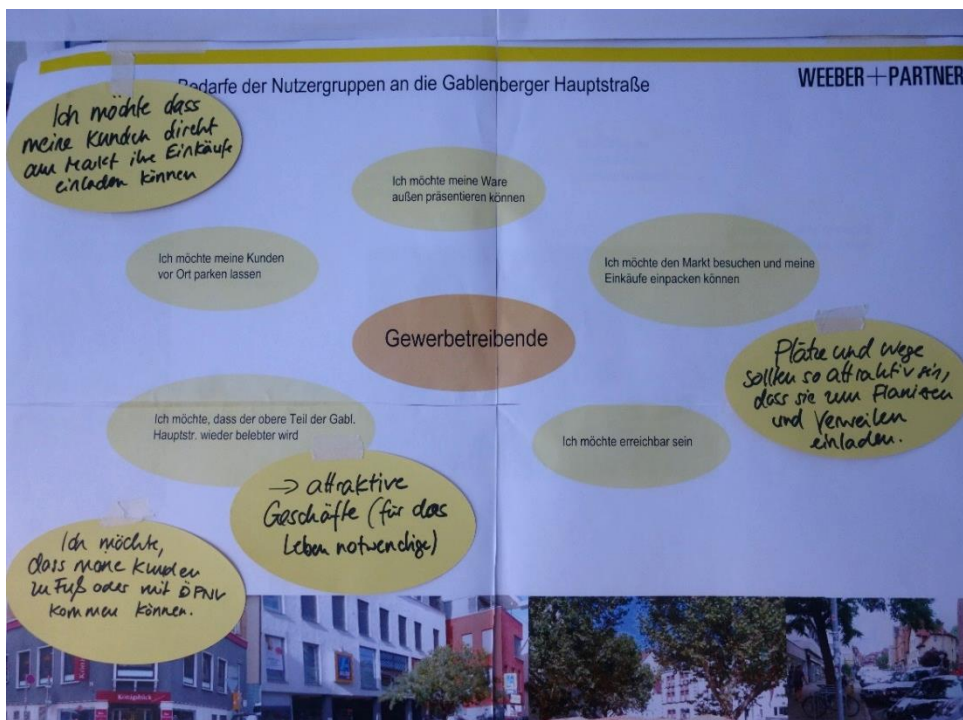 Bedarfe der Nutzergruppen an die Gablenberger Hauptstraße
WEEBER+PARTNER
Ich möchte dass
meine Kunden direkt
am Markt ihre Einkäufe
einladen können
Ich möchte meine Ware
außen präsentieren können
Ich möchte meine Kunden
vor Ort parken lassen
Ich möchte den Markt besuchen und meine
Einkäufe einpacken können
Gewerbetreibende
Plätze und Wege
sollen so attraktiv sein,
dass sie zum Flanieren
und Verweilen
einladen.
Ich möchte, dass der obere Teil der Gabl.
Hauptstr. wieder belebter wird
Ich möchte erreichbar sein
→ attraktive
Geschäfte (für das
Leben notwendige)
Ich möchte,
dass meine Kunden
zu Fuß oder mit ÖPNV
kommen können.